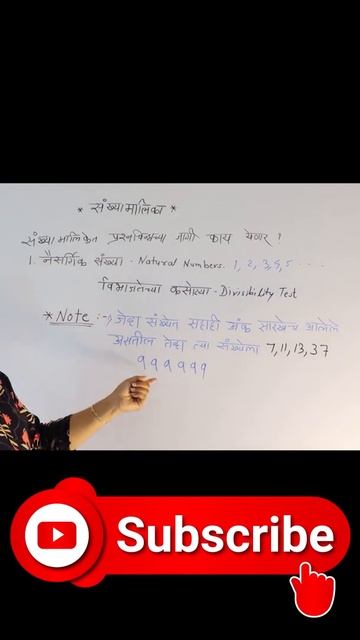 * संख्यामालिका *
संख्यामालिकेत प्रश्नचिन्हाच्या जागी काय येणार ?
1. नैसर्गिक संख्या - Natural Numbers. 1, 2, 3, 4, 5 ....
विभाजतेच्या कसोट्या - Divisibility Test
* Note :- जेव्हा संख्येत सहाही अंक सारखेच आलेले
असतील तेव्हा त्या संख्येला 7, 11, 13, 37
१११११११
Subscribe